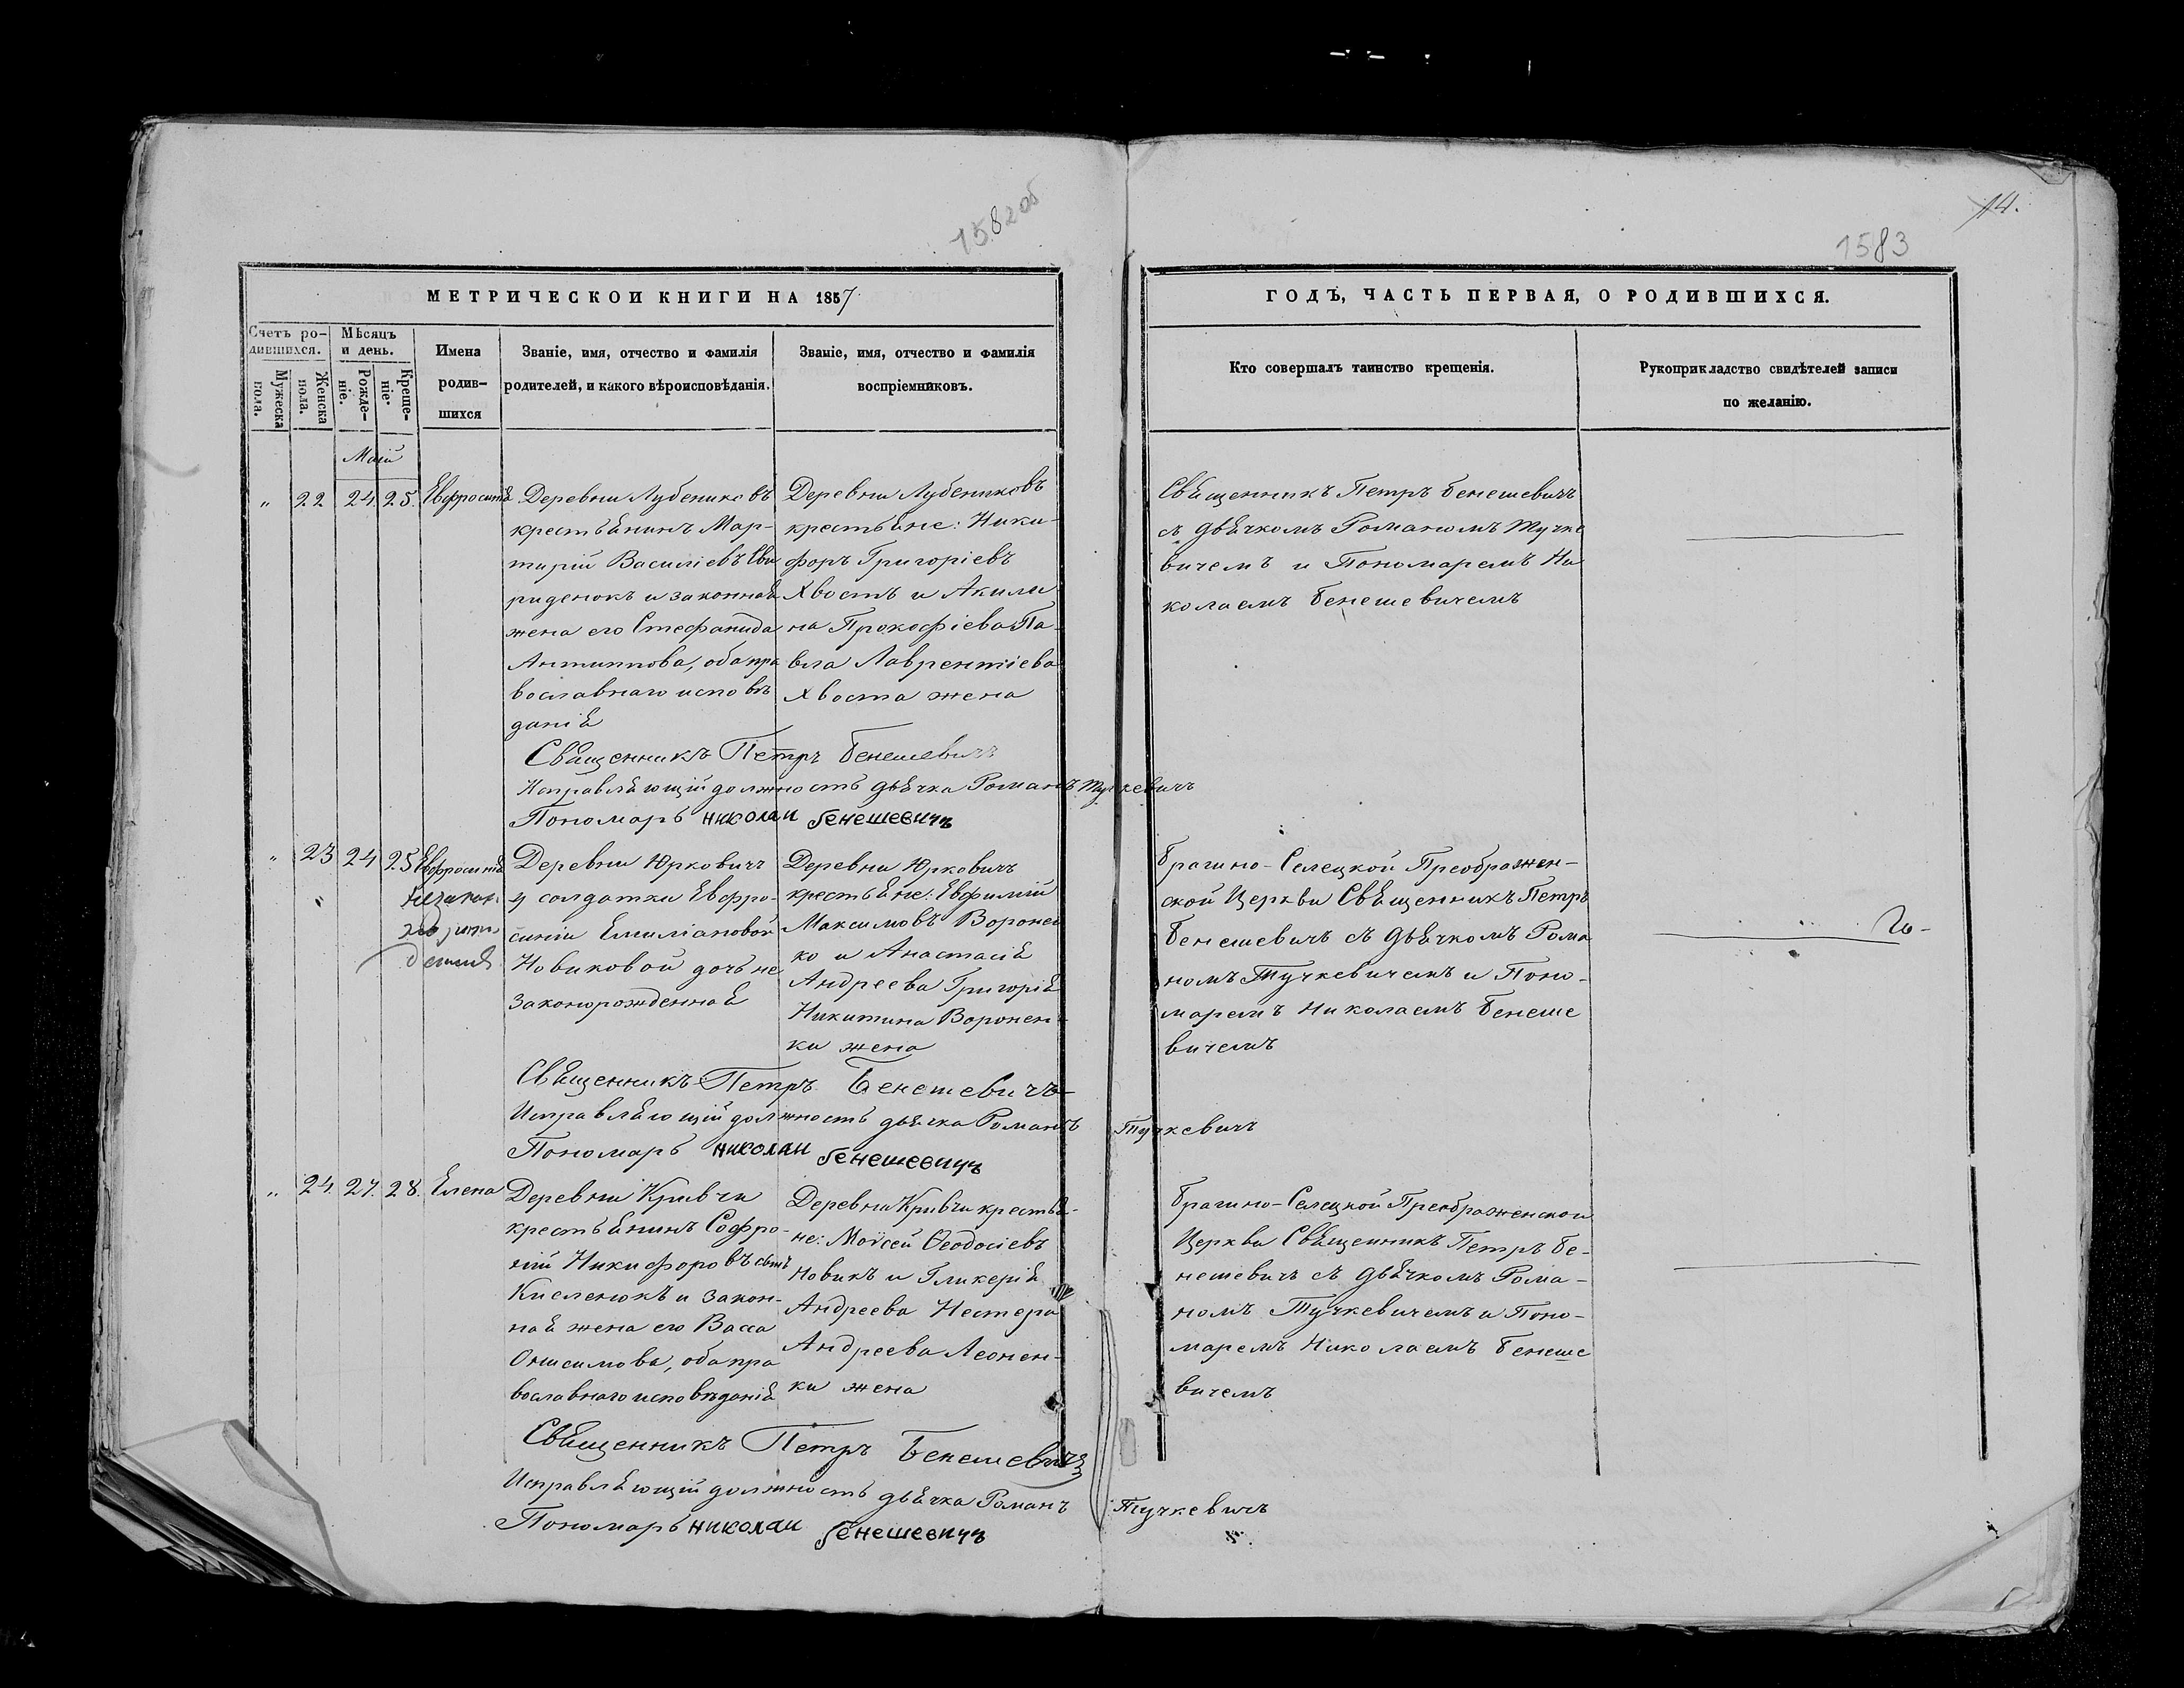 1582об
14.
1583
МЕТРИЧЕСКОЙ КНИГИ НА 1857
ГОДЪ, ЧАСТЬ ПЕРВАЯ, О РОДИВШИХСЯ.
Счетъ ро-
дившихся.
Мужеска
пола.
Женска
пола.
Мѣсяцъ
и день.
Рожде-
ніе.
Креще-
ніе.
Имена
родив-
шихся
Званіе, имя, отчество и фамилія
родителей, и какого вѣроисповѣданія.
Званіе, имя, отчество и фамилія
воспріемниковъ.
Кто совершалъ таинство крещенія.
Рукоприкладство свидѣтелей записи
по желанію.
Маій
„ 22 24 25. Евфросинія
Деревни Лубениковъ
крестьянинъ Мар-
тирій Василіевъ Сви
риденокъ и законная
жена его Стефанида
Антиппова, оба пра
вославнаго исповѣ
данія
Деревни Лубениковъ
крестьяне: Ники-
форъ Григоріевъ
Хвостъ и Акили
на Прокофіева Па-
вла Лаврентіева
Хвоста жена
Священникъ Петръ Бенешевичъ
съ дьячкомъ Романомъ Тучке
вичемъ и Пономаремъ Ни
колаемъ Бенешевичемъ
Священникъ Петръ Бенешевичъ
Исправляющій должность дьячка Романъ Тучкевичъ
Пономарь Николаи Бенешевичъ
„ 23 24 25 Евфросинія
незакон
Деревни Юрковичъ
у солдатки Евфро-
синіи Емиліановой
Новиковой дочь не
законорожденная
Деревни Юрковичъ
крестьяне: Евфимій
Максимовъ Воронен
ко и Анастасія
Андреева Григорія
Никитина Воронен-
ки жена
Брагино-Селецкой Преображен-
ской Церкви Священникъ Петръ
Бенешевичъ съ дьячкомъ Рома
номъ Тучкевичемъ и Поно-
маремъ Николаемъ Бенеше
вичемъ
Священникъ Петръ Бенешевичъ
Исправляющій должность дьячка Романъ Тучкевичъ
Пономарь Николаи Бенешевичъ
„ 24. 27. 28. Елена
Деревни Кривчи
крестьянинъ Софро-
ній Никифоровъ сынъ
Киселенокъ и закон-
ная жена его Васса
Онисимова, оба пра
вославнаго исповѣданія
Деревни Кривчи крестья-
не: Моѵсей Ѳеодосіевъ
Новикъ и Гликерія
Андреева Нестера
Андреева Леонен-
ки жена
Брагино-Селецкой Преображенской
Церкви Священникъ Петръ Бе-
нешевичъ съ дьячкомъ Рома-
номъ Тучкевичемъ и Поно-
маремъ Николаемъ Бенеше
вичемъ
Священникъ Петръ Бенешевичъ
Исправляющій должность дьячка Романъ Тучкевичъ
Пономарь Николаи Бенешевичъ